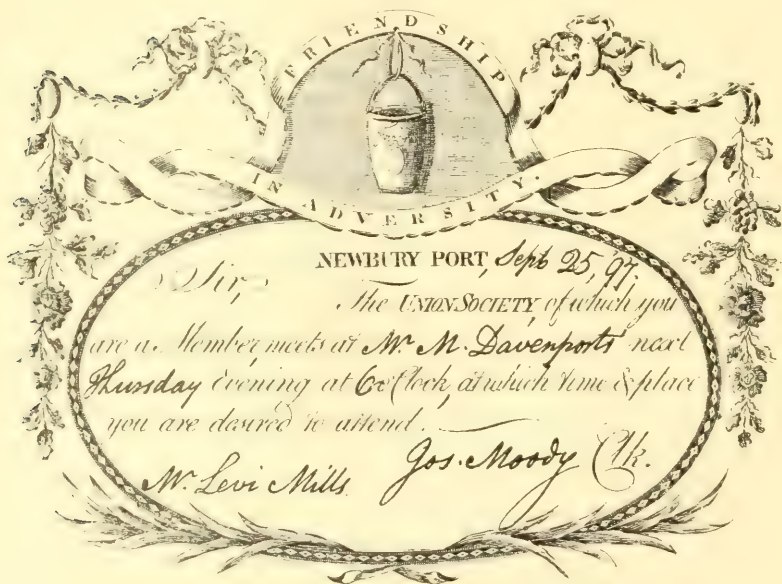 FRIENDSHIP
IN ADVERSITY.
NEWBURY PORT, Sept 25, 97,
Sir,
The UNION SOCIETY, of which you
are a Member, meets at Mr. M. Davenports next
Thursday Evening at 6 o'Clock, at which time & place
you are desired to attend.
Jos. Moody Clk.
Mr. Levi Mills